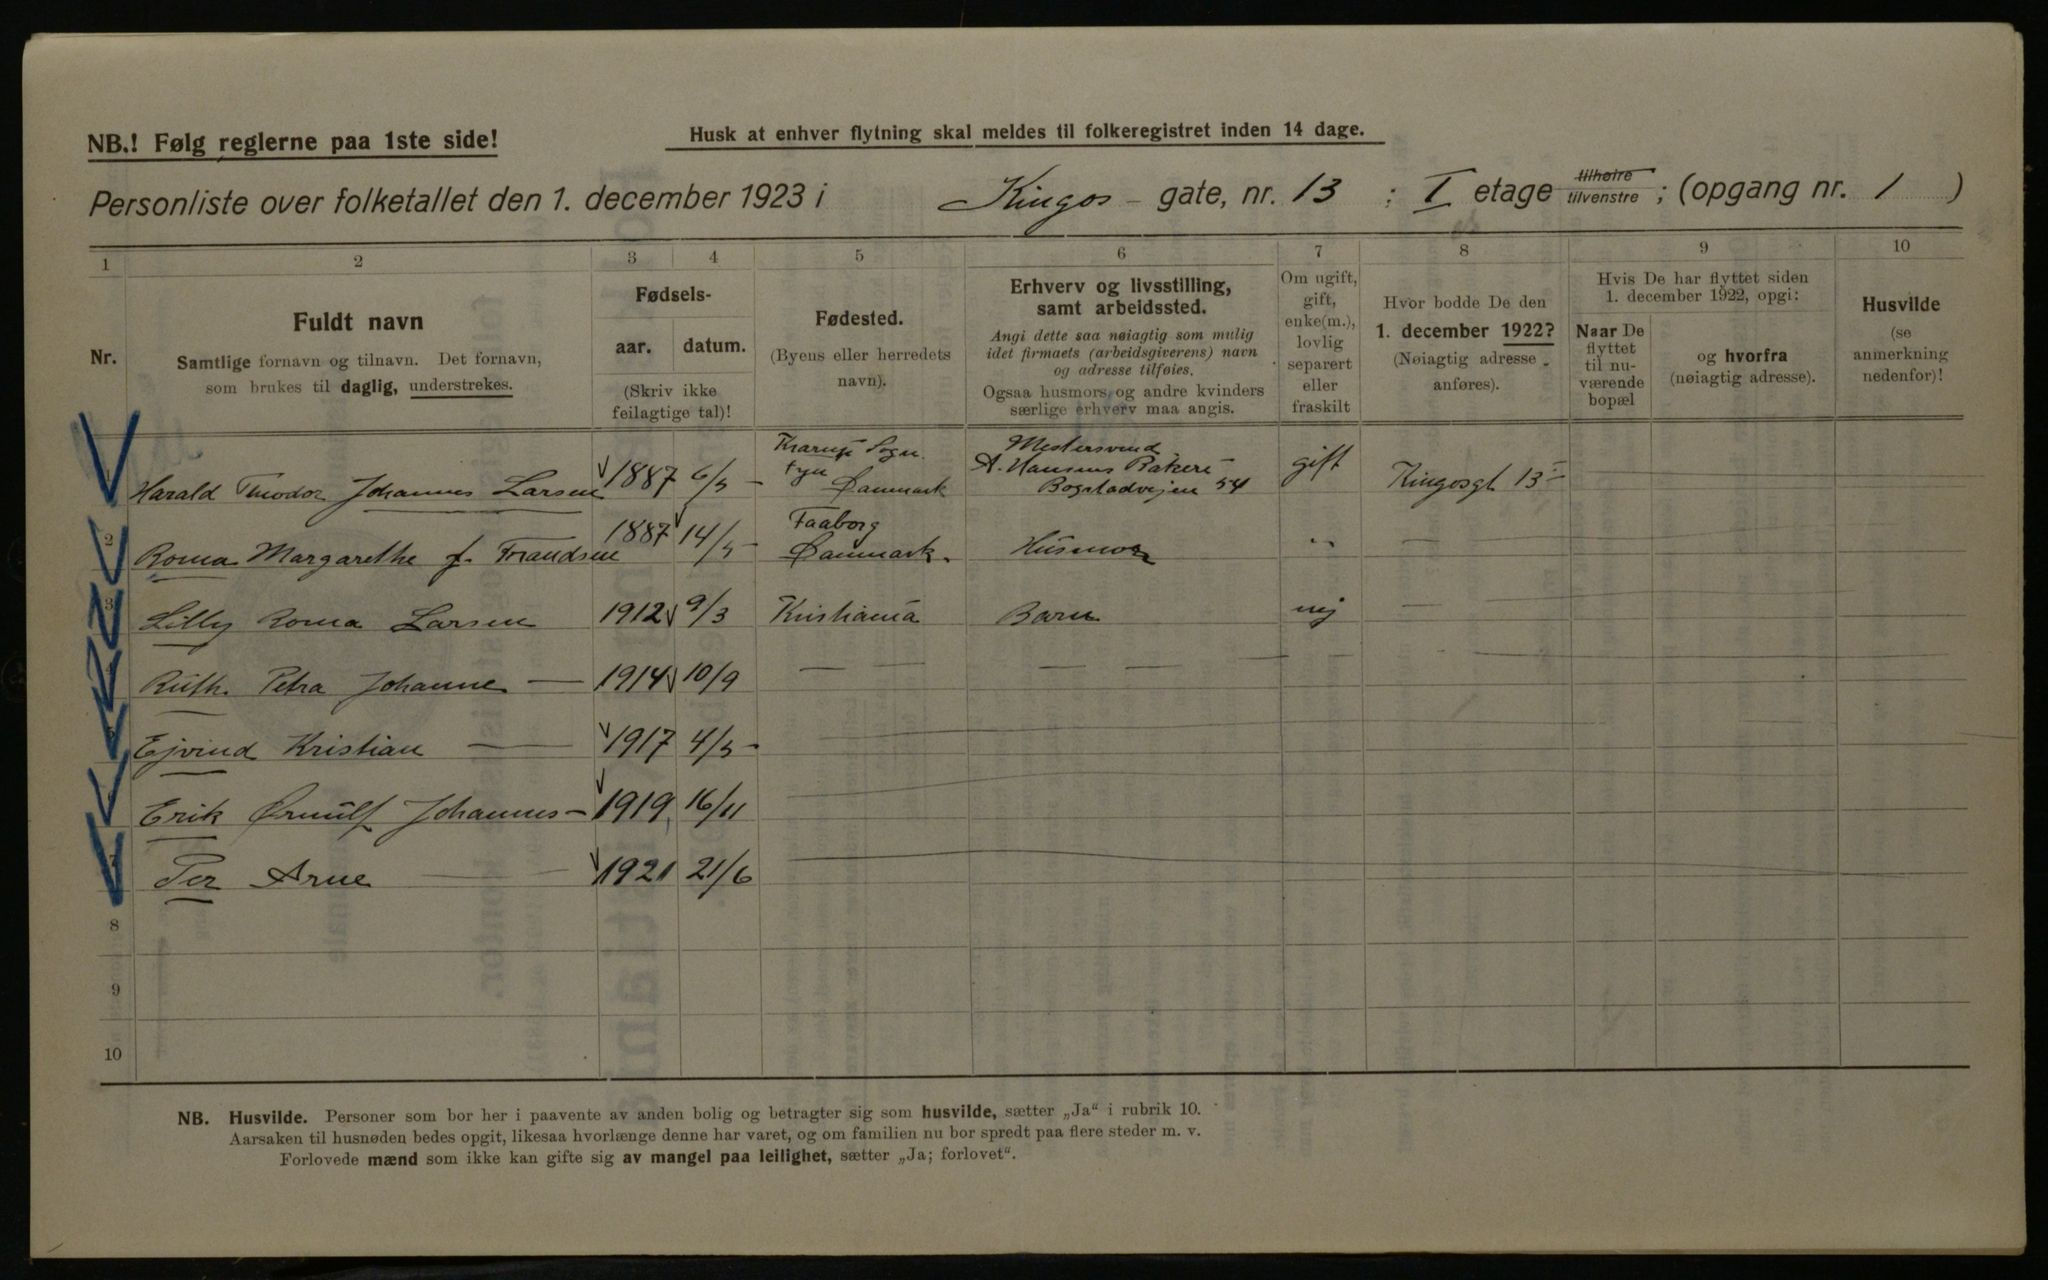 NB.! Følg reglerne paa 1ste side!
Husk at enhver flytning skal meldes til folkeregistret inden 14 dage.
Personliste over folketallet den 1. december 1923 i Kingos - gate, nr. 13 ; I etage tilhøire tilvenstre ; (opgang nr. 1 )
1 2 3 4 5 6 7 8 9 10
Nr.
Fuldt navn
Samtlige fornavn og tilnavn. Det fornavn,
som brukes til daglig, understrekes.
Fødsels-
aar. datum.
(Skriv ikke
feilagtige tal)!
Fødested.
(Byens eller herredets
navn).
Erhverv og livsstilling,
samt arbeidssted.
Angi dette saa nøiagtig som mulig
idet firmaets (arbeidsgiverens) navn
og adresse tilføies.
Ogsaa husmors og andre kvinders
særlige erhverv maa angis.
Om ugift,
gift,
enke(m.),
lovlig
separert
eller
fraskilt
Hvor bodde De den
1. december 1922?
(Nøiagtig adresse
anføres).
Hvis De har flyttet siden
1. december 1922, opgi:
Naar De
flyttet
til nu-
værende
bopæl
og hvorfra
(nøiagtig adresse).
Husvilde
(se
anmerkning
nedenfor)!
Harald Theodor Johannes Larsen 1887 6/5 Krarup Sogn Fyn Danmark Mestersvend A. Hansens Bakeri Bogstadvejen 54 gift Kingosgt 13 I
2 Roma Margarethe f. Frandsen 1887 14/5 Faaborg Danmark. Husmor " —
3 Lilly Roma Larsen 1912 9/3 Kristiania Barn nej —
Ruth Petra Johanne — 1914 10/9 — — — —
Ejvind Kristian — 1917 4/5
Erik Ørnulf Johannes — 1919 16/11
7 Per Arne — 1921 21/6
8
9
10
NB. Husvilde. Personer som bor her i paavente av anden bolig og betragter sig som husvilde, sætter „Ja“ i rubrik 10.
Aarsaken til husnøden bedes opgit, likesaa hvorlænge denne har varet, og om familien nu bor spredt paa flere steder m. v.
Forlovede mænd som ikke kan gifte sig av mangel paa leilighet, sætter „Ja; forlovet“.